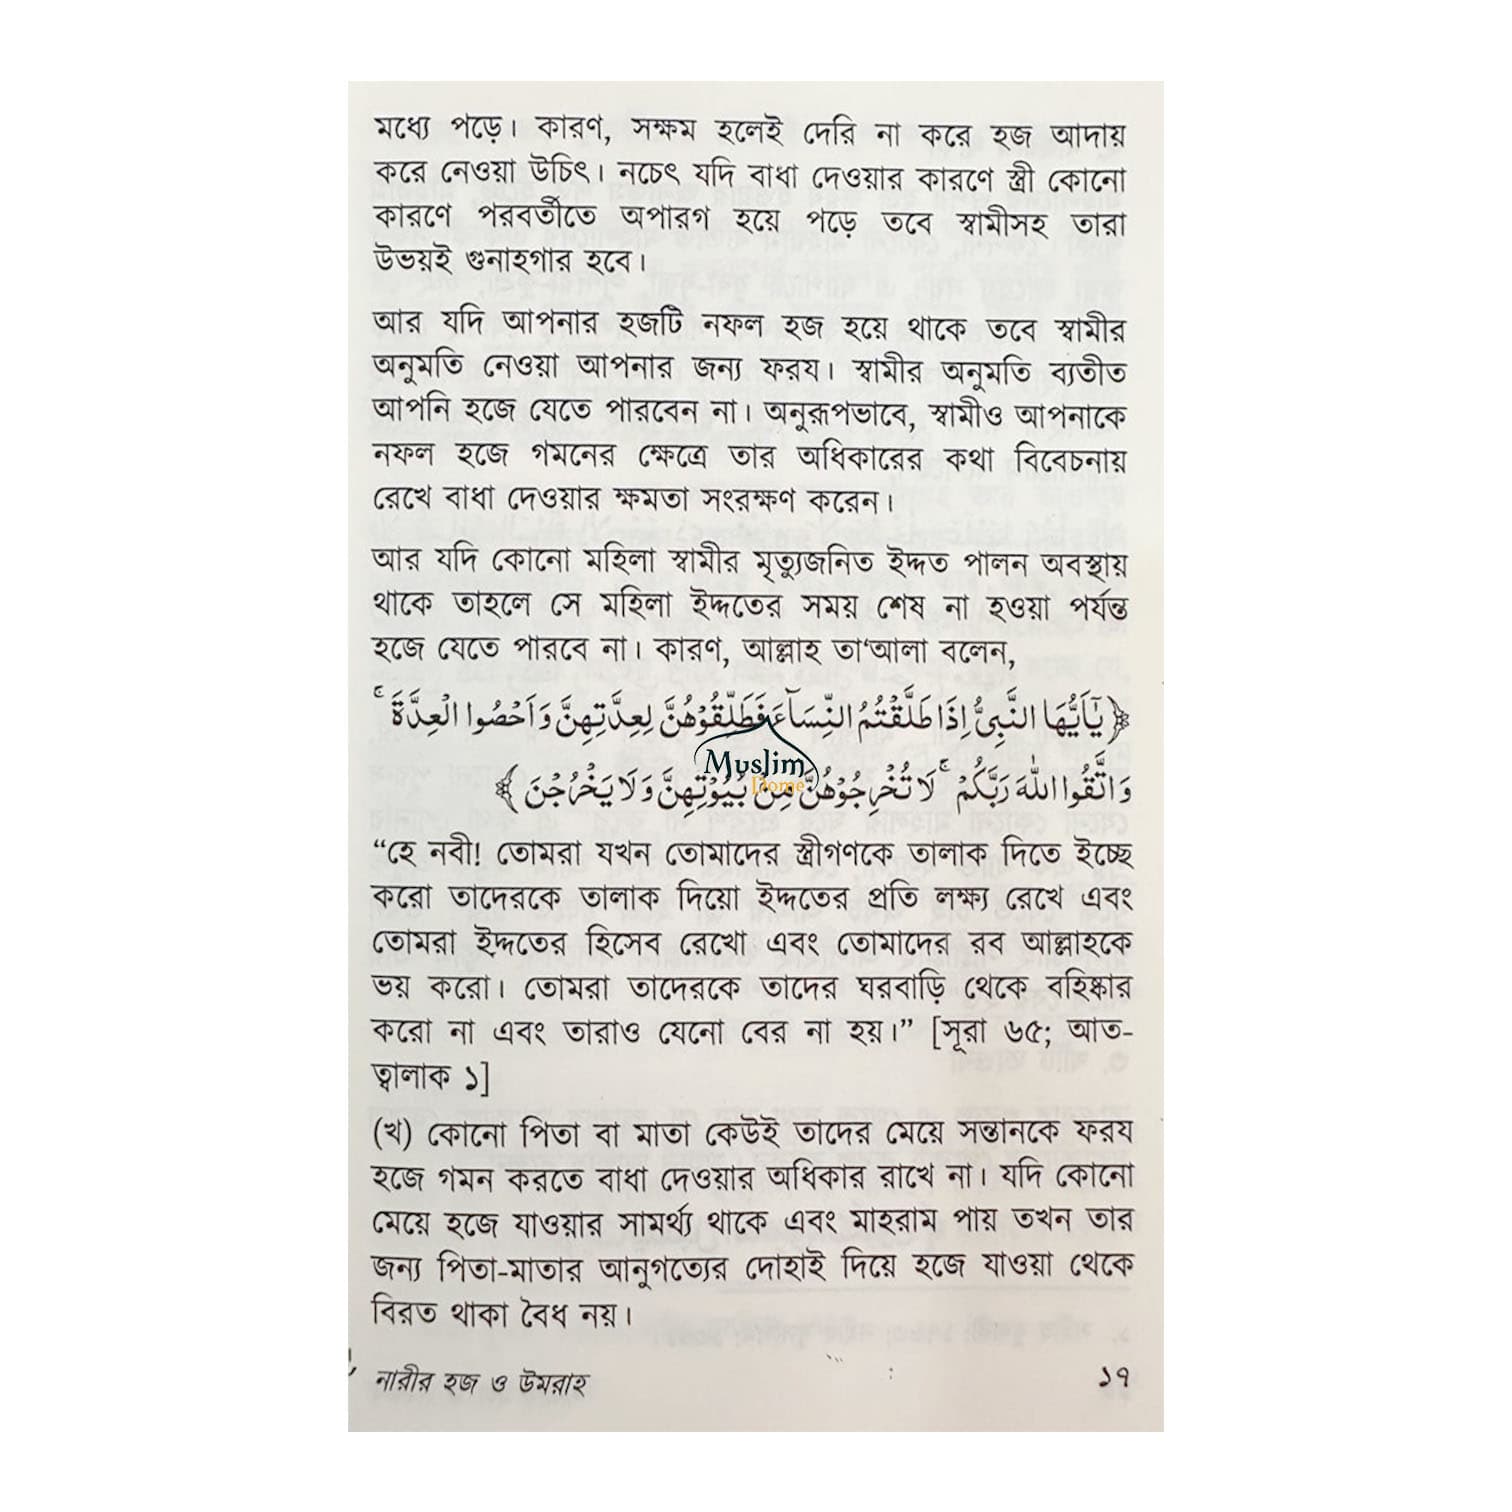 মধ্যে পড়ে। কারণ, সক্ষম হলেই দেরি না করে হজ আদায়
করে নেওয়া উচিৎ। নচেৎ যদি বাধা দেওয়ার কারণে স্ত্রী কোনো
কারণে পরবর্তীতে অপারগ হয়ে পড়ে তবে স্বামীসহ তারা
উভয়ই গুনাহগার হবে।
আর যদি আপনার হজটি নফল হজ হয়ে থাকে তবে স্বামীর
অনুমতি নেওয়া আপনার জন্য ফরয। স্বামীর অনুমতি ব্যতীত
আপনি হজে যেতে পারবেন না। অনুরূপভাবে, স্বামীও আপনাকে
নফল হজে গমনের ক্ষেত্রে তার অধিকারের কথা বিবেচনায়
রেখে বাধা দেওয়ার ক্ষমতা সংরক্ষণ করেন।
আর যদি কোনো মহিলা স্বামীর মৃত্যুজনিত ইদ্দত পালন অবস্থায়
থাকে তাহলে সে মহিলা ইদ্দতের সময় শেষ না হওয়া পর্যন্ত
হজে যেতে পারবে না। কারণ, আল্লাহ তা‘আলা বলেন,
﴿يٰٓاَيُّهَا النَّبِىُّ اِذَا طَلَّقْتُمُ النِّسَآءَ فَطَلِّقُوْهُنَّ لِعِدَّتِهِنَّ وَاَحْصُوا الْعِدَّةَ ۚ
وَاتَّقُوا اللّٰهَ رَبَّكُمْ ۚ لَا تُخْرِجُوْهُنَّ مِنْۢ بُيُوْتِهِنَّ وَلَا يَخْرُجْنَ﴾
Muslim
Dome
“হে নবী! তোমরা যখন তোমাদের স্ত্রীগণকে তালাক দিতে ইচ্ছে
করো তাদেরকে তালাক দিয়ো ইদ্দতের প্রতি লক্ষ্য রেখে এবং
তোমরা ইদ্দতের হিসেব রেখো এবং তোমাদের রব আল্লাহকে
ভয় করো। তোমরা তাদেরকে তাদের ঘরবাড়ি থেকে বহিষ্কার
করো না এবং তারাও যেনো বের না হয়।” [সূরা ৬৫; আত-
ত্বালাক ১]
(খ) কোনো পিতা বা মাতা কেউই তাদের মেয়ে সন্তানকে ফরয
হজে গমন করতে বাধা দেওয়ার অধিকার রাখে না। যদি কোনো
মেয়ে হজে যাওয়ার সামর্থ্য থাকে এবং মাহরাম পায় তখন তার
জন্য পিতা-মাতার আনুগত্যের দোহাই দিয়ে হজে যাওয়া থেকে
বিরত থাকা বৈধ নয়।
নারীর হজ ও উমরাহ ১৭